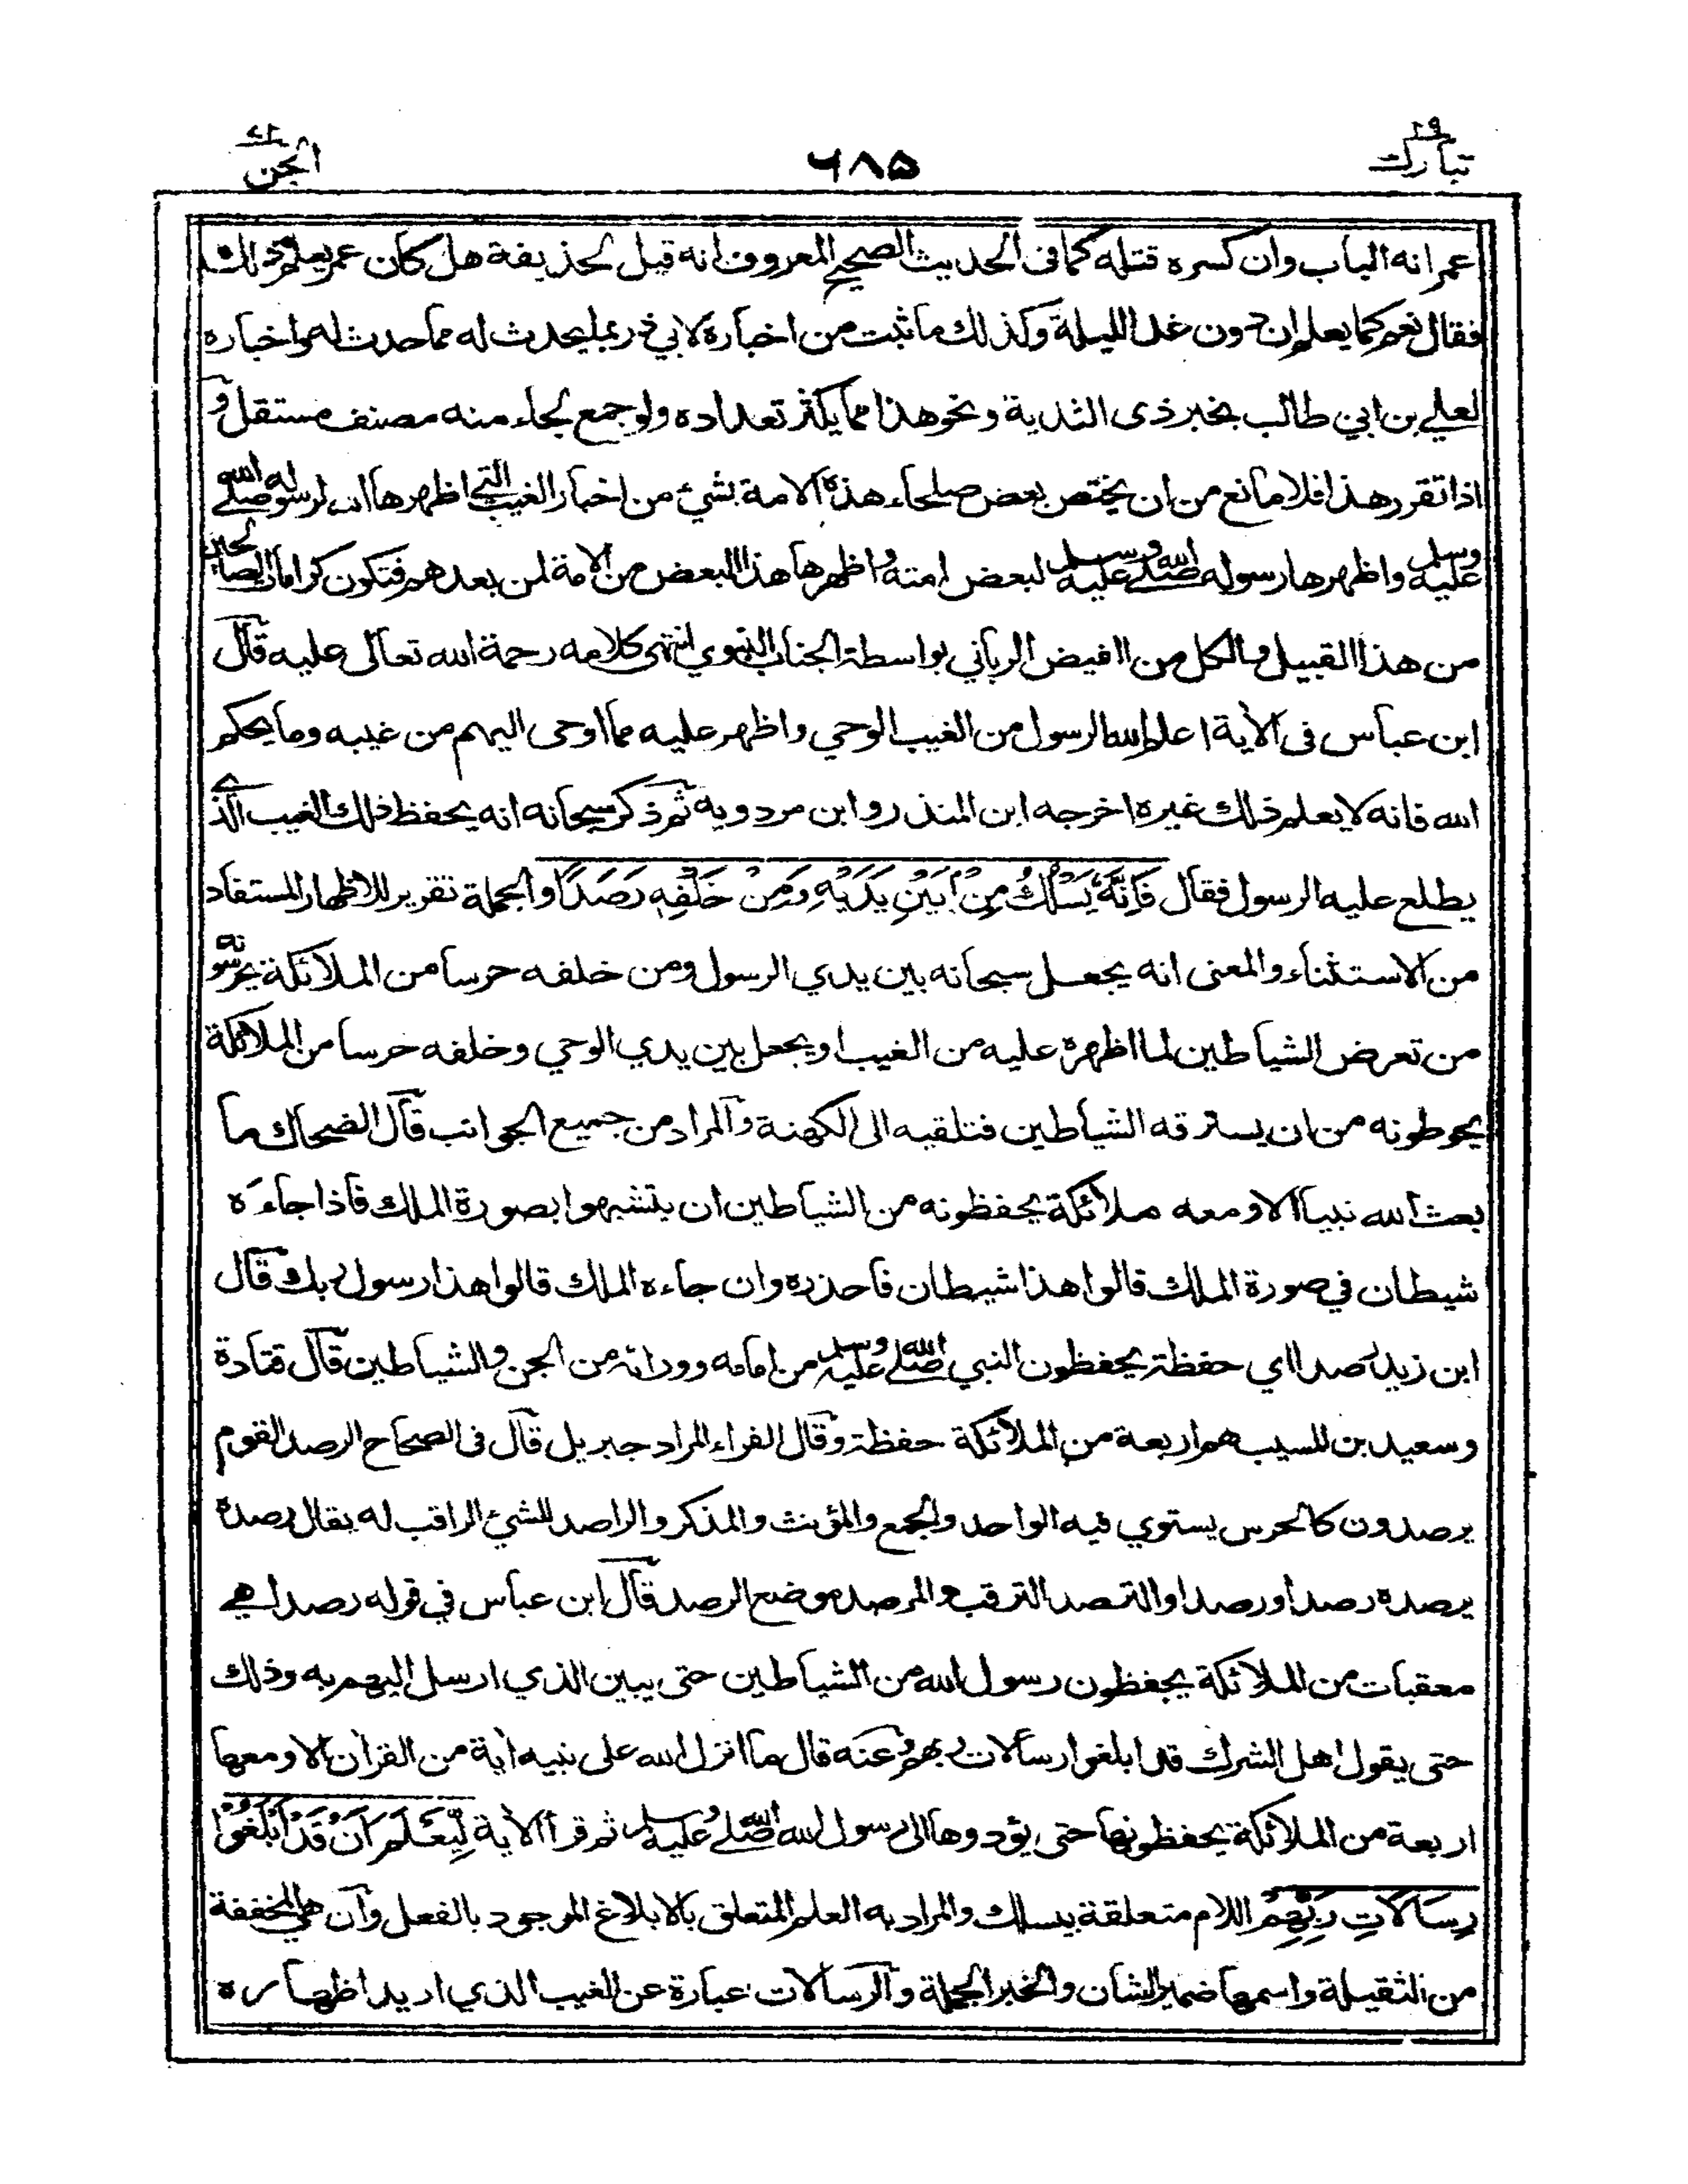 تبارك ٢٩
٦٨٥
الجن ٧٢
عمر انه الباب وان كسره قتله كما فى الحديث الصحيح المعروف انه قيل لحذيفة هل كان عمر يعلم ذلك
فقال نعم كما يعلم ان دون غد الليلة وكذلك ما ثبت من اخباره لابي ذر بما يحدث له مما حدث له واخباره
لعلي بن ابي طالب بخبر ذى الثدية ونحو هذا مما يكثر تعداده ولو جمع لجاء منه مصنف مستقل و
اذا تقرر هذا فلا مانع من ان يختص بعض صلحاء هذه الامة بشئ من اخبار الغيب التي اظهرها الله لرسوله صلى الله
عليه وسلم واظهرها رسوله صلى الله عليه وسلم لبعض امته واظهرها هذا البعض من الامة لمن بعدهم فتكون كرامات الصالحين
من هذا القبيل والكل من الفيض الرباني بواسطة الجناب النبوي انتهى كلامه رحمة الله تعالى عليه قال
ابن عباس فى الاية اعلم الله الرسول من الغيب الوحي واظهر عليه مما اوحى اليهم من غيبه وما يحكم
الله فانه لا يعلم ذلك غيره اخرجه ابن المنذر وابن مردوية ثم ذكر سبحانه انه يحفظ ذلك الغيب الذي
يطلع عليه الرسول فقال فَاِنَّهُ يَسْلُكُ مِنْ بَيْنِ يَدَيْهِ وَمِنْ خَلْفِهٖ رَصَدًا والجملة تقرير للاظهار المستفاد
من الاستثناء والمعنى انه يجعل سبحانه بين يدي الرسول ومن خلفه حرسا من الملائكة يحرسونه
من تعرض الشياطين لما اظهره عليه من الغيب او يجعل بين يدي الوحي وخلفه حرسا من الملائكة
يحوطونه من ان يسترقه الشياطين فتلقيه الى الكهنة والمراد من جميع الجوانب قال الضحاك ما
بعث الله نبيا الا ومعه ملائكة يحفظونه من الشياطين ان يتشبهوا بصورة الملك فاذا جاءه
شيطان في صورة الملك قالوا هذا شيطان فاحذره وان جاءه الملك قالوا هذا رسول ربك قال
ابن زيد رصدا اي حفظة يحفظون النبي صلى الله عليه وسلم من امامه وورائه من الجن والشياطين قال قتادة
وسعيد بن المسيب هم اربعة من الملائكة حفظة وقال الفراء المراد جبريل قال فى الصحاح الرصد القوم
يرصدون كالحرس يستوي فيه الواحد والجمع والمؤنث والمذكر والراصد للشئ الراقب له يقال رصده
يرصده رصدا ورصدا والترصد الترقب والمرصد موضع الرصد قال ابن عباس في قوله رصدا هي
معقبات من الملائكة يحفظون رسول الله من الشياطين حتى يبين الذي ارسل اليهم به وذلك
حتى يقول اهل الشرك قد ابلغوا رسالات ربهم وعنه قال ما انزل الله على نبيه اية من القران الا ومعها
اربعة من الملائكة يحفظونها حتى يؤدوها الى رسول الله صلى الله عليه وسلم ثم قرأ الاية لِيَعْلَمَ اَنْ قَدْ اَبْلَغُوْا
رِسَالَاتِ رَبِّهِمْ اللام متعلقة بيسلك والمراد به العلم المتعلق بالابلاغ الموجود بالفعل وان هي المخففة
من الثقيلة واسمها ضمير الشان والخبر الجملة والرسالات عبارة عن الغيب الذي اريد اظهاره